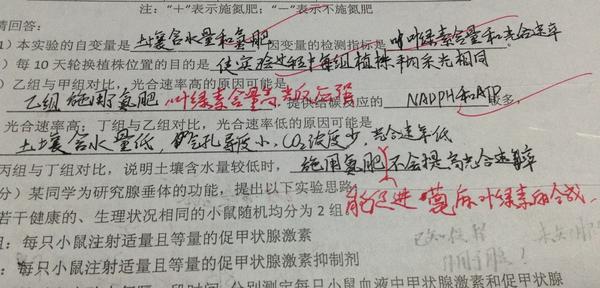 注：“+”表示施氮肥；“−”表示不施氮肥
请回答：
1）本实验的自变量是 土壤含水量和氮肥 因变量的检测指标是 叶绿素含量和光合速率
）每 10 天轮换植株位置的目的是 使实验过程中每组植株平均采光相同
）乙组与甲组对比，光合速率高的原因可能是
乙组施用氮肥 叶绿素含量高 光反应强 提供给 NADPH和ATP 较多，
光合速率高；丁组与乙组对比，光合速率低的原因可能是
土壤含水量低，气孔导度小，CO₂浓度少，光合速率低
丙组与丁组对比，说明土壤含水量较低时， 施用氮肥不会提高光合速率
能促进 叶绿素的合成.
分）某同学为研究腺垂体的功能，提出以下实验思路
若干健康的、生理状况相同的小鼠随机均分为 2 组
组：每只小鼠注射适量且等量的促甲状腺激素
：每只小鼠注射适量且等量的促甲状腺激素抑制剂
段时间 分别测定每只小鼠血液中甲状腺激素和促甲状腺